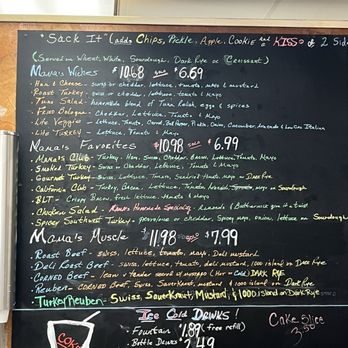 "Sack It" (adds Chips, Pickle, Apple, Cookie and a KISS or 2 Sid
(Served on Wheat, White, Sourdough, Dark Rye or Croissant)
Mama's Wiches $10.68 $6.69
Ham & Cheese - swiss or cheddar, lettuce, tomato, mayo & mustard
Roast Turkey - swiss or cheddar, lettuce, tomato & mayo
Tuna Salad - homemade blend of Tuna, Relish, eggs & spices
Fried Bologna - cheddar, Lettuce, Tomato & Mayo
Lite Veggie - Lettuce, Tomato, Pickle, Onion, Cucumber, Avocado & Low Cal Italian
Lite Turkey - Lettuce, Tomato & Mayo
Mama's Favorites $10.98 $6.99
Mama's Club - Turkey, Ham, Swiss, Cheddar, Bacon, Lettuce, Tomato, Mayo
Smoked Turkey - Swiss or Cheddar, Lettuce, Tomato & Mayo
Gourmet Turkey - Swiss, Lettuce, Tomato, Mayo on Dark Rye
California Club - Turkey, Bacon, Lettuce, Tomato, Avocado, Mayo on Sourdough
BLT - Crispy Bacon, fresh lettuce, tomato & mayo
Chicken Salad - Mama's Homemade Specialty
Spicey Southwest Turkey - provolone or cheddar, Spicey Mayo, onion, lettuce on Sourdough
Mama's Muscle $11.98 $7.99
Roast Beef - swiss, lettuce, tomato, mayo, Deli mustard
Deli Roast Beef - Swiss, lettuce, tomato, deli mustard, 1000 island on Dark Rye
Corned Beef - lean + tender (Hot or Cold) DARK RYE
Reuben - Corned Beef, Swiss, Sauerkraut, mustard & 1000 island on Dark Rye
Turkey Reuben - Swiss, Sauerkraut, Mustard, & 1000 island on Dark Rye
Ice Cold Drinks!
Fountain $1.89 (free refill)
Bottle Drinks 2.49
Cake Slice
3.50
COKE